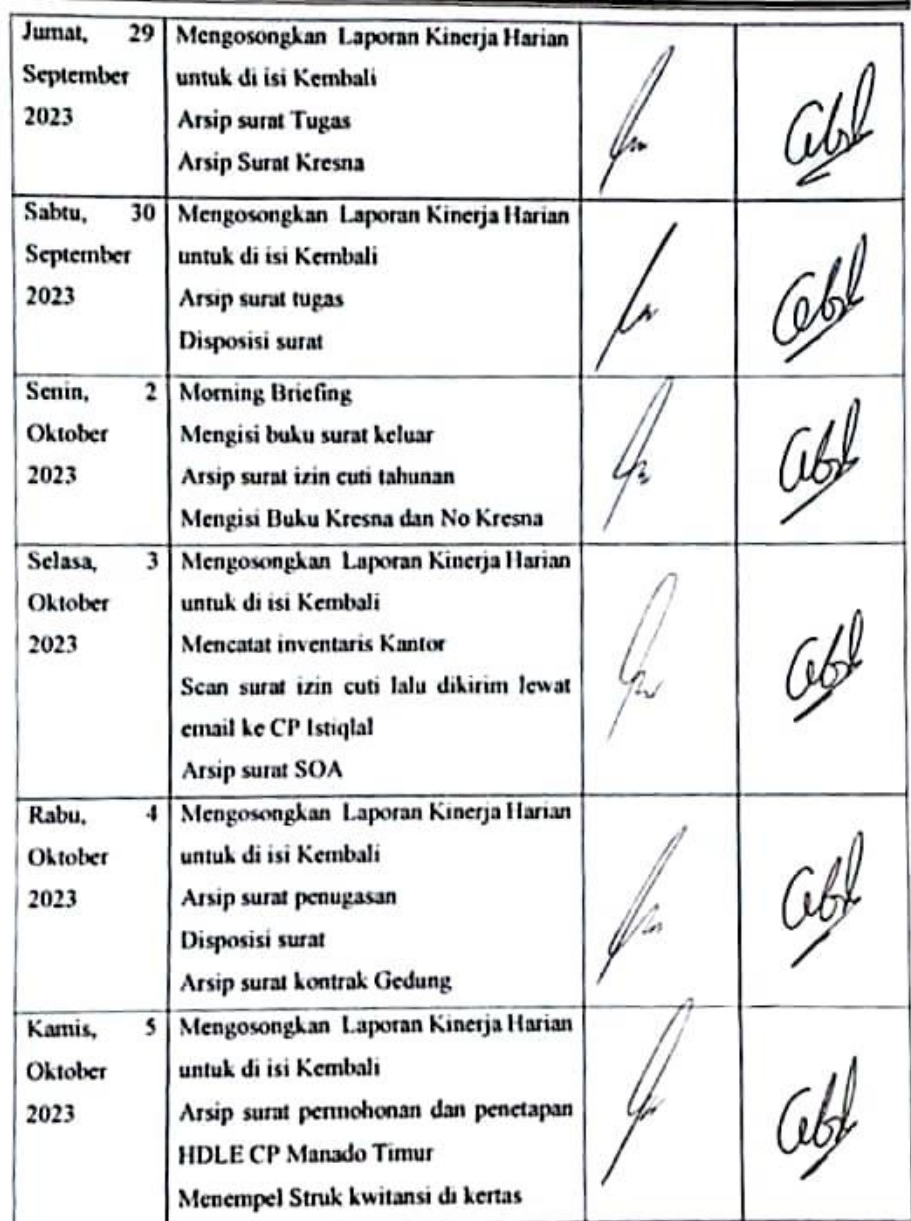 Jumat, 29 September 2023
Mengosongkan Laporan Kinerja Harian
untuk di isi Kembali
Arsip surat Tugas
Arsip Surat Kresna
Sabtu, 30 September 2023
Mengosongkan Laporan Kinerja Harian
untuk di isi Kembali
Arsip surat tugas
Disposisi surat
Senin, 2 Oktober 2023
Morning Briefing
Mengisi buku surat keluar
Arsip surat izin cuti tahunan
Mengisi Buku Kresna dan No Kresna
Selasa, 3 Oktober 2023
Mengosongkan Laporan Kinerja Harian
untuk di isi Kembali
Mencatat inventaris Kantor
Scan surat izin cuti lalu dikirim lewat
email ke CP Istiqlal
Arsip surat SOA
Rabu, 4 Oktober 2023
Mengosongkan Laporan Kinerja Harian
untuk di isi Kembali
Arsip surat penugasan
Disposisi surat
Arsip surat kontrak Gedung
Kamis, 5 Oktober 2023
Mengosongkan Laporan Kinerja Harian
untuk di isi Kembali
Arsip surat permohonan dan penetapan
HDLE CP Manado Timur
Menempel Struk kwitansi di kertas